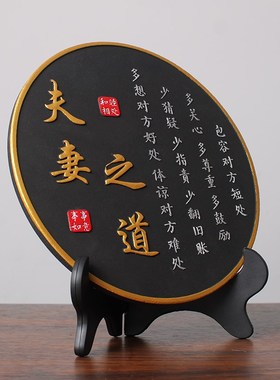 夫妻之道
和睦相处
事事如意
包容对方短处
多关心 多尊重 多鼓励
少猜疑 少指责 少翻旧账
多想对方好处 体谅对方难处